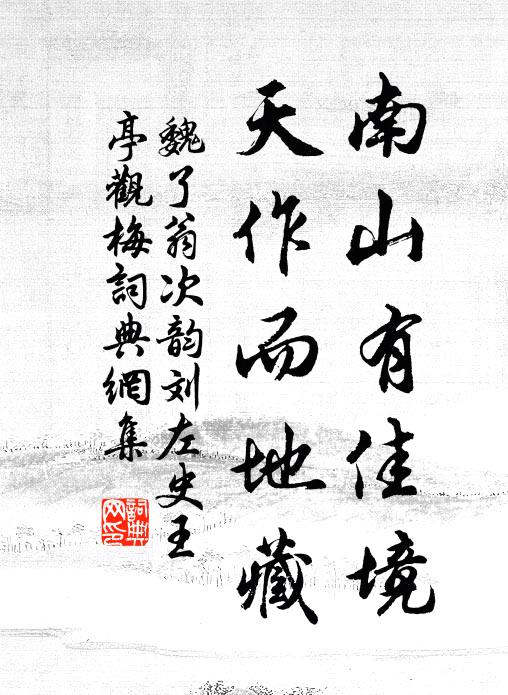 南山有佳境
天作而地藏
魏了翁次韵刘左史王
亭觀梅詞典網集
詞典网印